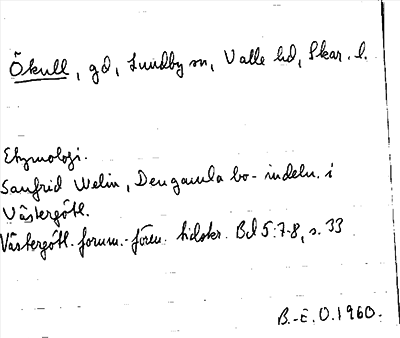 Ökull, gd, Lundby sn, Valle hd, Skar. l.
Etymologi.
Sanfrid Welin, Den gamla bo-indeln. i
Västergötl.
Västergötl. fornm.-fören. tidskr. Bd 5:7-8, s. 33
B.-E. O. 1960.